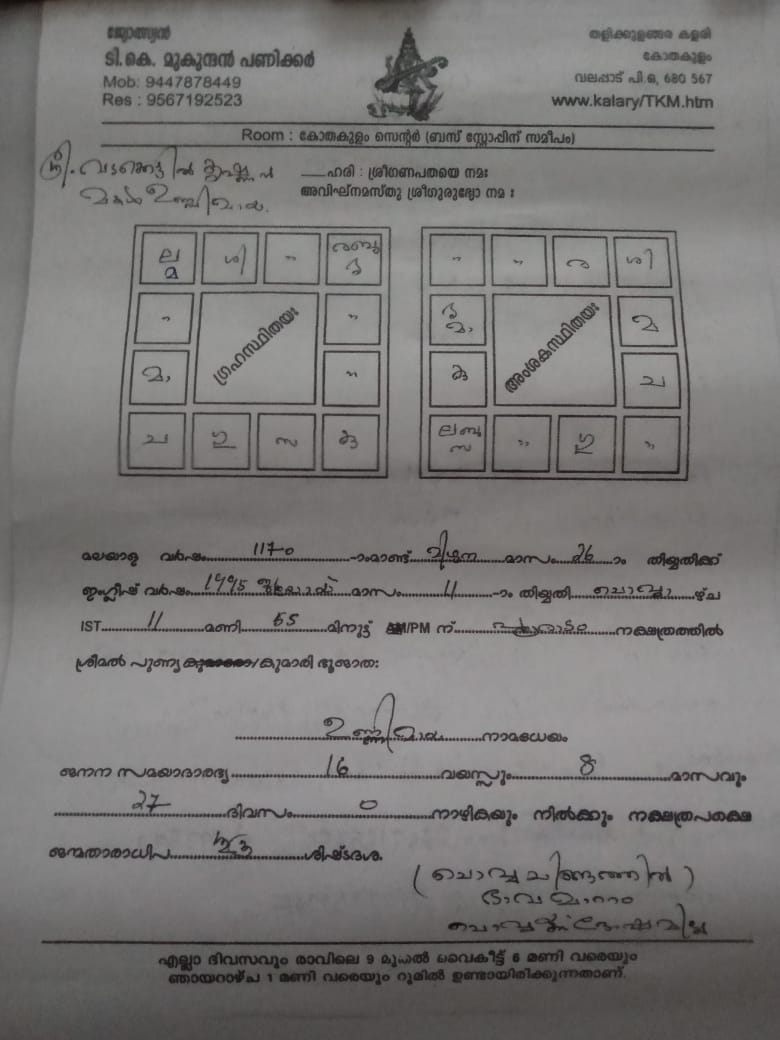 ജ്യോത്സ്യൻ
ടി.കെ. മുകുന്ദൻ പണിക്കർ
Mob: 9447878449
Res : 9567192523
തളിക്കുളങ്ങര കളരി
കോതകുളം
വലപ്പാട് പി.ഒ, 680 567
www.kalary/TKM.htm
Room : കോതകുളം സെന്റർ (ബസ് സ്റ്റോപ്പിന് സമീപം)
ഹരി : ശ്രീഗണപതയെ നമഃ
അവിഘ്നമസ്തു ശ്രീഗുരുഭ്യോ നമ :
മകൾ ഉണ്ണിമായ.
ല ശി " 
മ
" "
മ "
ച ഗു സ കു
ഗ്രഹസ്ഥിതയഃ
" " ര ശി
മ
കു ച
സ " ഗു "
അംശകസ്ഥിതയഃ
മലയാള വർഷം 1170 -ാംമാണ്ട് മിഥുന മാസം 26 ാം തിയ്യതിക്ക്
ഇംഗ്ലീഷ് വർഷം 1995 ജൂലായ് മാസം 11 -ാം തിയ്യതി ചൊവ്വാ ഴ്ച
IST 11 മണി 55 മിനുട്ട് AM/PM ന് പൂരാടം നക്ഷത്രത്തിൽ
ശ്രീമൽ പുണ്യ കുമാര/കുമാരി ഭൂജാതഃ
ഉണ്ണിമായ നാമധേയം
ജനന സമയാദാരഭ്യ 16 വയസ്സും 8 മാസവും
27 ദിവസം 0 നാഴികയും നിൽക്കും നക്ഷത്രപക്ഷെ
ജന്മതാരാധിപ ശുക്ര ശിഷ്ടദശ.
(ചൊവ്വ ചിങ്ങത്തിൽ)
ഭാവ മാറ്റം
ചൊവ്വക്ക് ദോഷമില്ല
എല്ലാ ദിവസവും രാവിലെ 9 മുതൽ വൈകീട്ട് 6 മണി വരെയും
ഞായറാഴ്ച 1 മണി വരെയും റൂമിൽ ഉണ്ടായിരിക്കുന്നതാണ്.